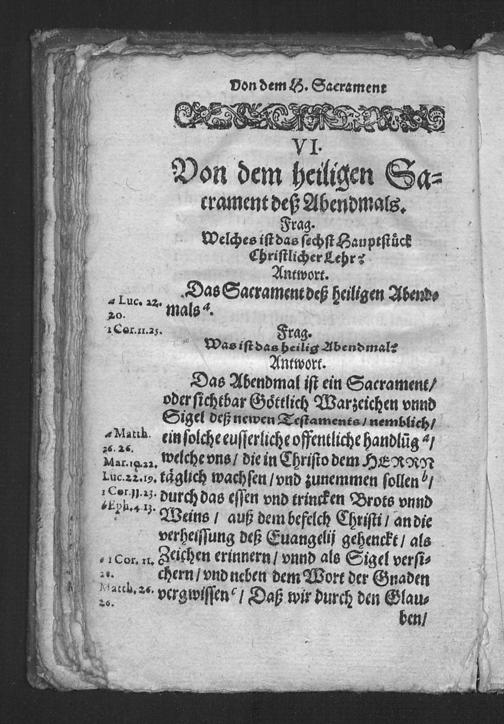 Von dem H. Sacrament
VI.
Von dem heiligen Sa-
crament deß Abendmals.
Frag.
Welches ist das sechst Hauptstück
Christlicher Lehr?
Antwort.
Das Sacrament deß heiligen Abend-
mals a.
a Luc. 22.
20.
1 Cor. 11. 25.
Frag.
Was ist das heilig Abendmal?
Antwort.
Das Abendmal ist ein Sacrament/
oder sichtbar Göttlich Warzeichen vnnd
Sigel deß newen Testaments/ nemblich/
ein solche eusserliche offentliche handlūg a/
welche vns/ die in Christo dem HERRN
täglich wachsen/ vnd zunemmen sollen b/
durch das essen vnd trincken Brots vnnd
Weins/ auß dem befelch Christi/ an die
verheissung deß Euangelij gehenckt/ als
Zeichen erinnern/ vnnd als Sigel versi-
chern/ vnd neben dem Wort der Gnaden
vergwissen c/ Daß wir durch den Glau-
ben/
a Matth.
26. 26.
Mar. 14. 22.
Luc. 22. 19.
1 Cor. 11. 23.
b Eph. 4. 13.
c 1 Cor. 11.
Matth. 26.